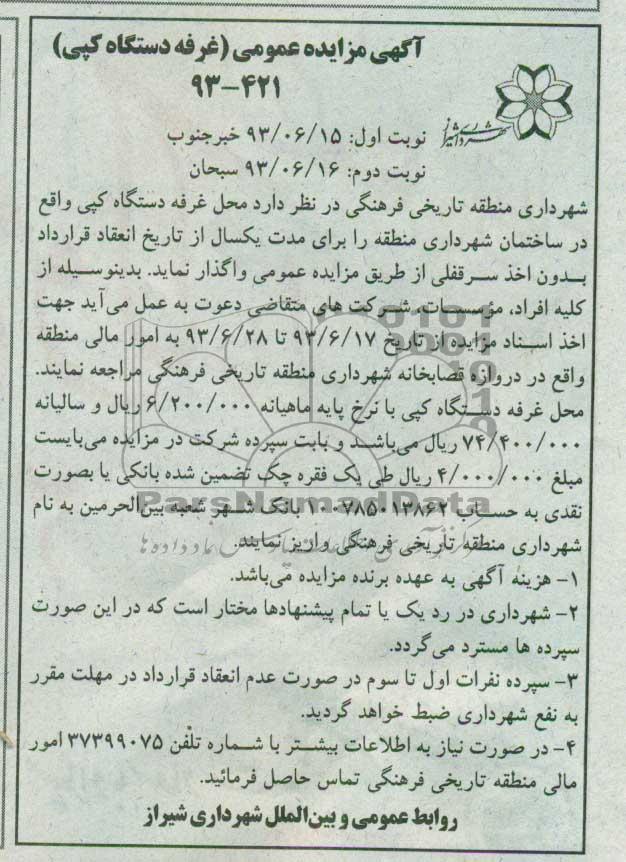 آگهی مزایده عمومی (غرفه دستگاه کپی)
۹۳-۴۲۱
شهرداری شیراز
نوبت اول: ۹۳/۰۶/۱۵ خبرجنوب
نوبت دوم: ۹۳/۰۶/۱۶ سبحان
شهرداری منطقه تاریخی فرهنگی در نظر دارد محل غرفه دستگاه کپی واقع
در ساختمان شهرداری منطقه را برای مدت یکسال از تاریخ انعقاد قرارداد
بدون اخذ سرقفلی از طریق مزایده عمومی واگذار نماید. بدینوسیله از
کلیه افراد، مؤسسات، شرکت های متقاضی دعوت به عمل می‌آید جهت
اخذ اسناد مزایده از تاریخ ۹۳/۶/۱۷ تا ۹۳/۶/۲۸ به امور مالی منطقه
واقع در دروازه قصابخانه شهرداری منطقه تاریخی فرهنگی مراجعه نمایند.
محل غرفه دستگاه کپی با نرخ پایه ماهیانه ۶/۲۰۰/۰۰۰ ریال و سالیانه
۷۴/۴۰۰/۰۰۰ ریال می‌باشد و بابت سپرده شرکت در مزایده می‌بایست
مبلغ ۴/۰۰۰/۰۰۰ ریال طی یک فقره چک تضمین شده بانکی یا بصورت
نقدی به حساب ۱۰۰۷۸۵۰۱۳۸۶۲ بانک شهر شعبه بین‌الحرمین به نام
شهرداری منطقه تاریخی فرهنگی واریز نمایند.
ParsNamadData
۱- هزینه آگهی به عهده برنده مزایده می‌باشد.
۲- شهرداری در رد یک یا تمام پیشنهادها مختار است که در این صورت
سپرده ها مسترد می‌گردد.
۳- سپرده نفرات اول تا سوم در صورت عدم انعقاد قرارداد در مهلت مقرر
به نفع شهرداری ضبط خواهد گردید.
۴- در صورت نیاز به اطلاعات بیشتر با شماره تلفن ۳۷۳۹۹۰۷۵ امور
مالی منطقه تاریخی فرهنگی تماس حاصل فرمائید.
روابط عمومی و بین‌الملل شهرداری شیراز